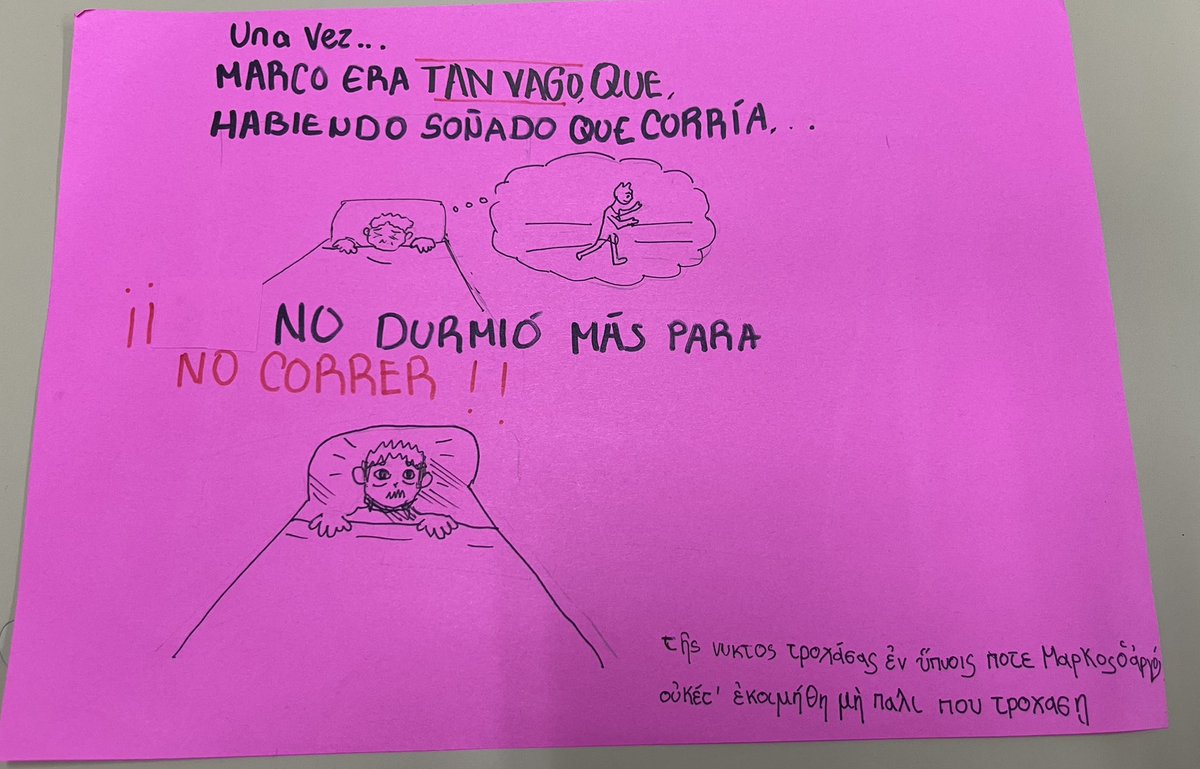 Una vez...
MARCO ERA TAN VAGO, QUE,
HABIENDO SOÑADO QUE CORRÍA...
¡¡ NO DURMIÓ MÁS PARA
NO CORRER !!
τῆς νυκτος τροχάσας ἐν ὕπνοις ποτε Μαρκος ὁ ἀργός
οὐκέτ' ἐκοιμήθη μὴ παλι που τροχαση